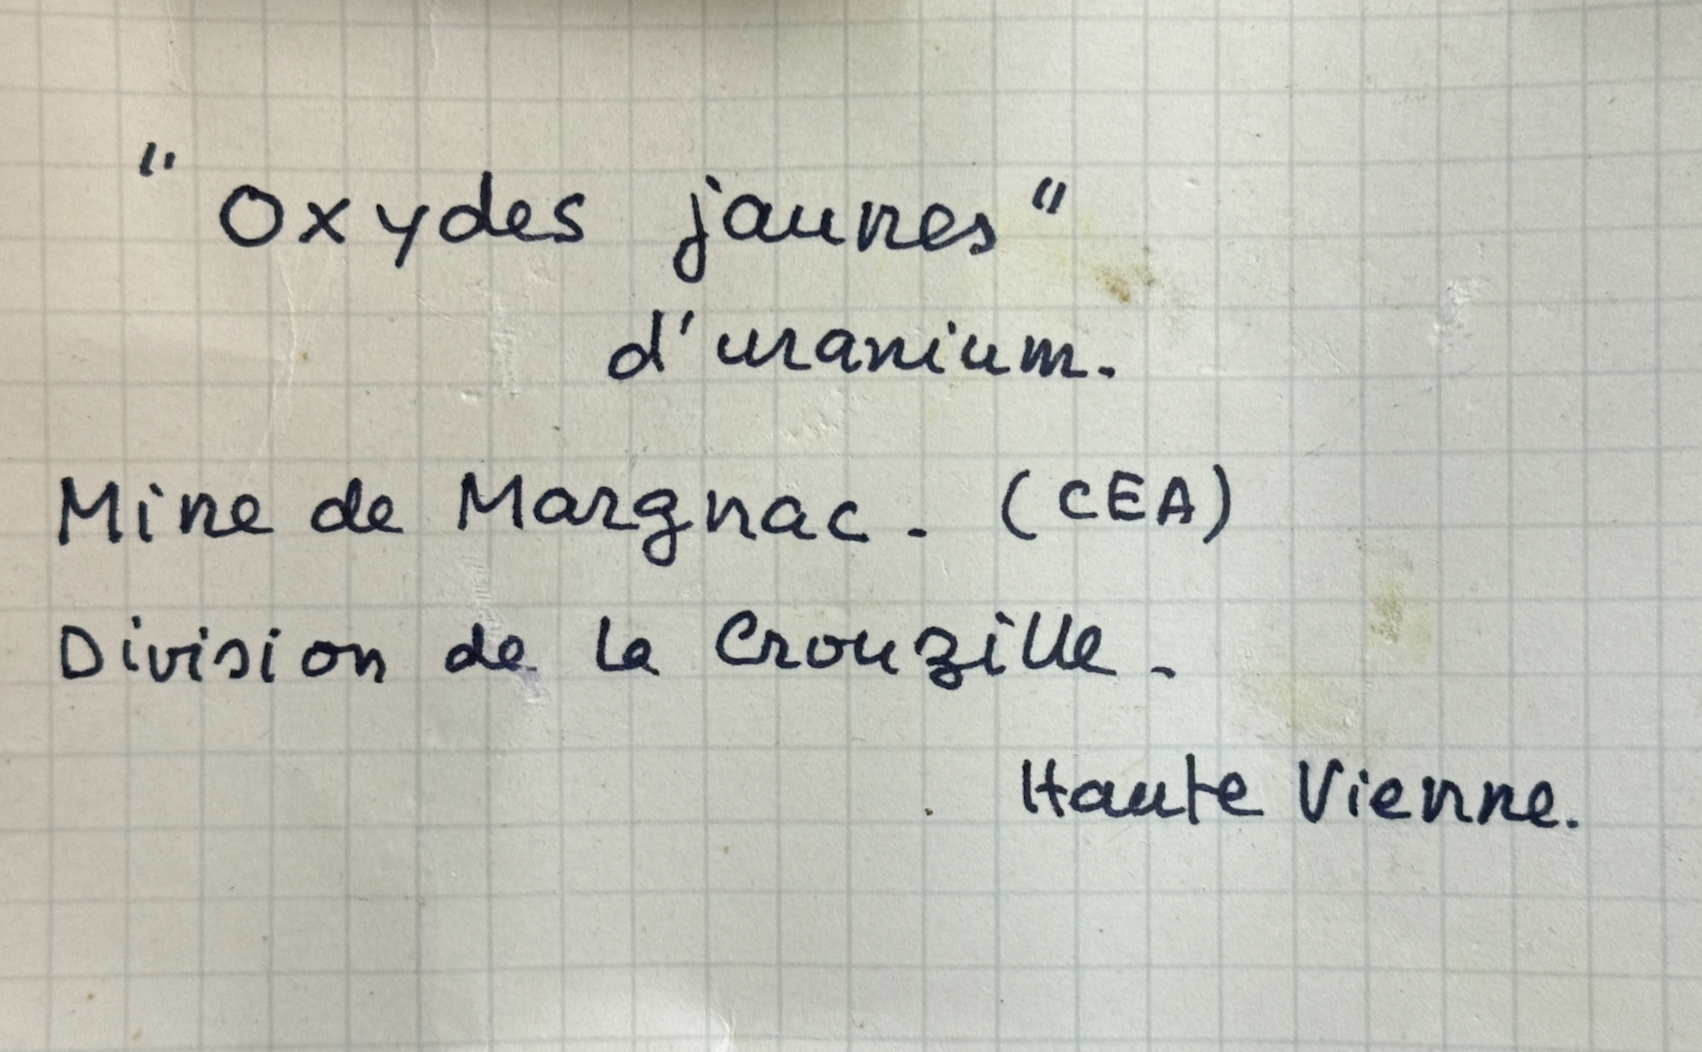 "Oxydes jaunes"
d'uranium.
Mine de Margnac. (CEA)
Division de la Crouzille.
Haute Vienne.